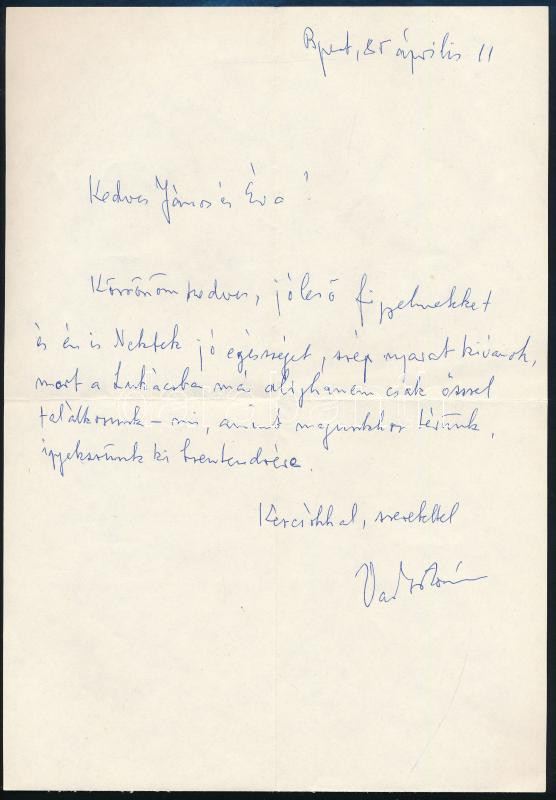 Bpest, 85 április 11
Kedves János és Éva!
Köszönöm kedves, jóleső figyelmeteket
és én is Nektek jó egészséget, szép nyarat kívánok,
mert a Lukácsba már alighanem csak ősszel
találkozunk – mi, amint magunkhoz térünk,
igyekszünk ki Szentendrére.
Kézcsókkal, szeretettel